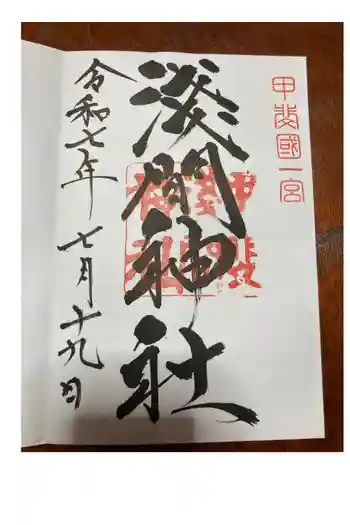 甲斐國一宮
浅間神社
令和七年 七月十九日